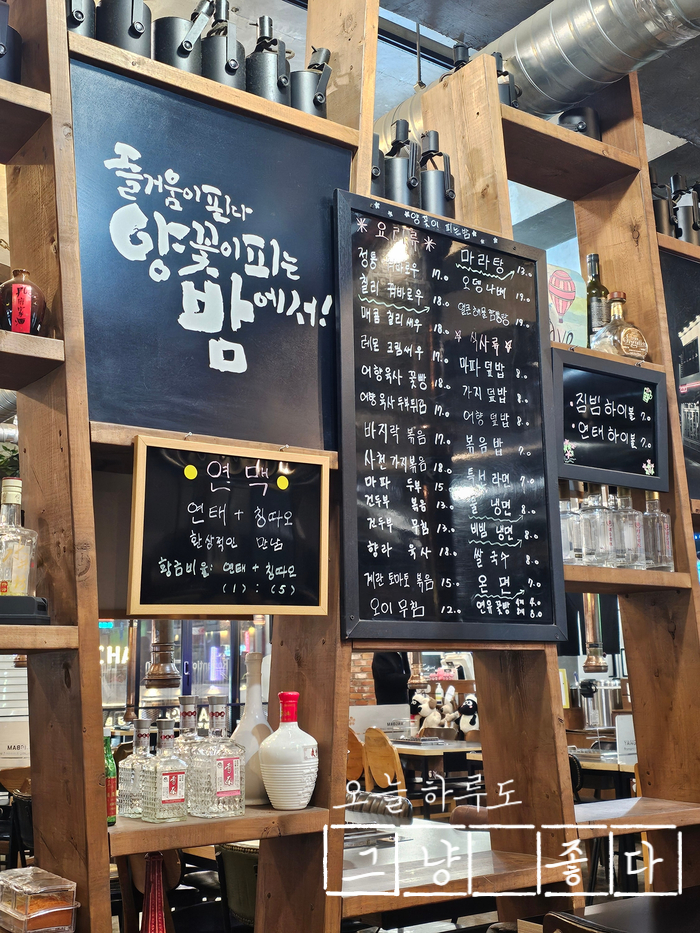 즐거움이 핀다
양꽃이 피는
밤에서!
양꽃이 피는밤
요리류
정통 꿔바로우 17.0
칠리 꿔바로우 18.0
매콤 칠리새우 18.0
레몬 크림새우 17.0
어향육사 꽃빵 18.0
어향육사두부튀김 17.0
바지락 볶음 17.0
사천가지볶음 18.0
마파 두부 15.0
건두부 볶음 13.0
건두부 무침 13.0
향라 육사 18.0
계란 토마토 볶음 15.0
오이 무침 12.0
마라탕 13.0
오뎅나베 19.0
19.0
식사류
마파 덮밥 8.0
가지 덮밥 8.0
어향 덮밥 8.0
볶음 밥 7.0
특선 라면 7.0
물 냉면 8.0
비빔 냉면 8.0
쌀 국수 8.0
온 면 7.0
연유꽃빵 8.0
짐빔 하이볼 7.0
연태 하이볼 7.0
연맥
연태 + 칭따오
환상적인 만남
황금비율: 연태 + 칭따오
(1) : (5)
오늘 하루도
그냥 좋다